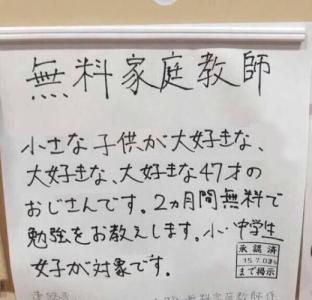 無料家庭教師
小さな子供が大好きな、
大好きな、大好きな47才の
おじさんです。2ヵ月間無料で
勉強をお教えします。小・中学生
女子が対象です。
承認済
15.7.03
まで掲示
無料家庭教師